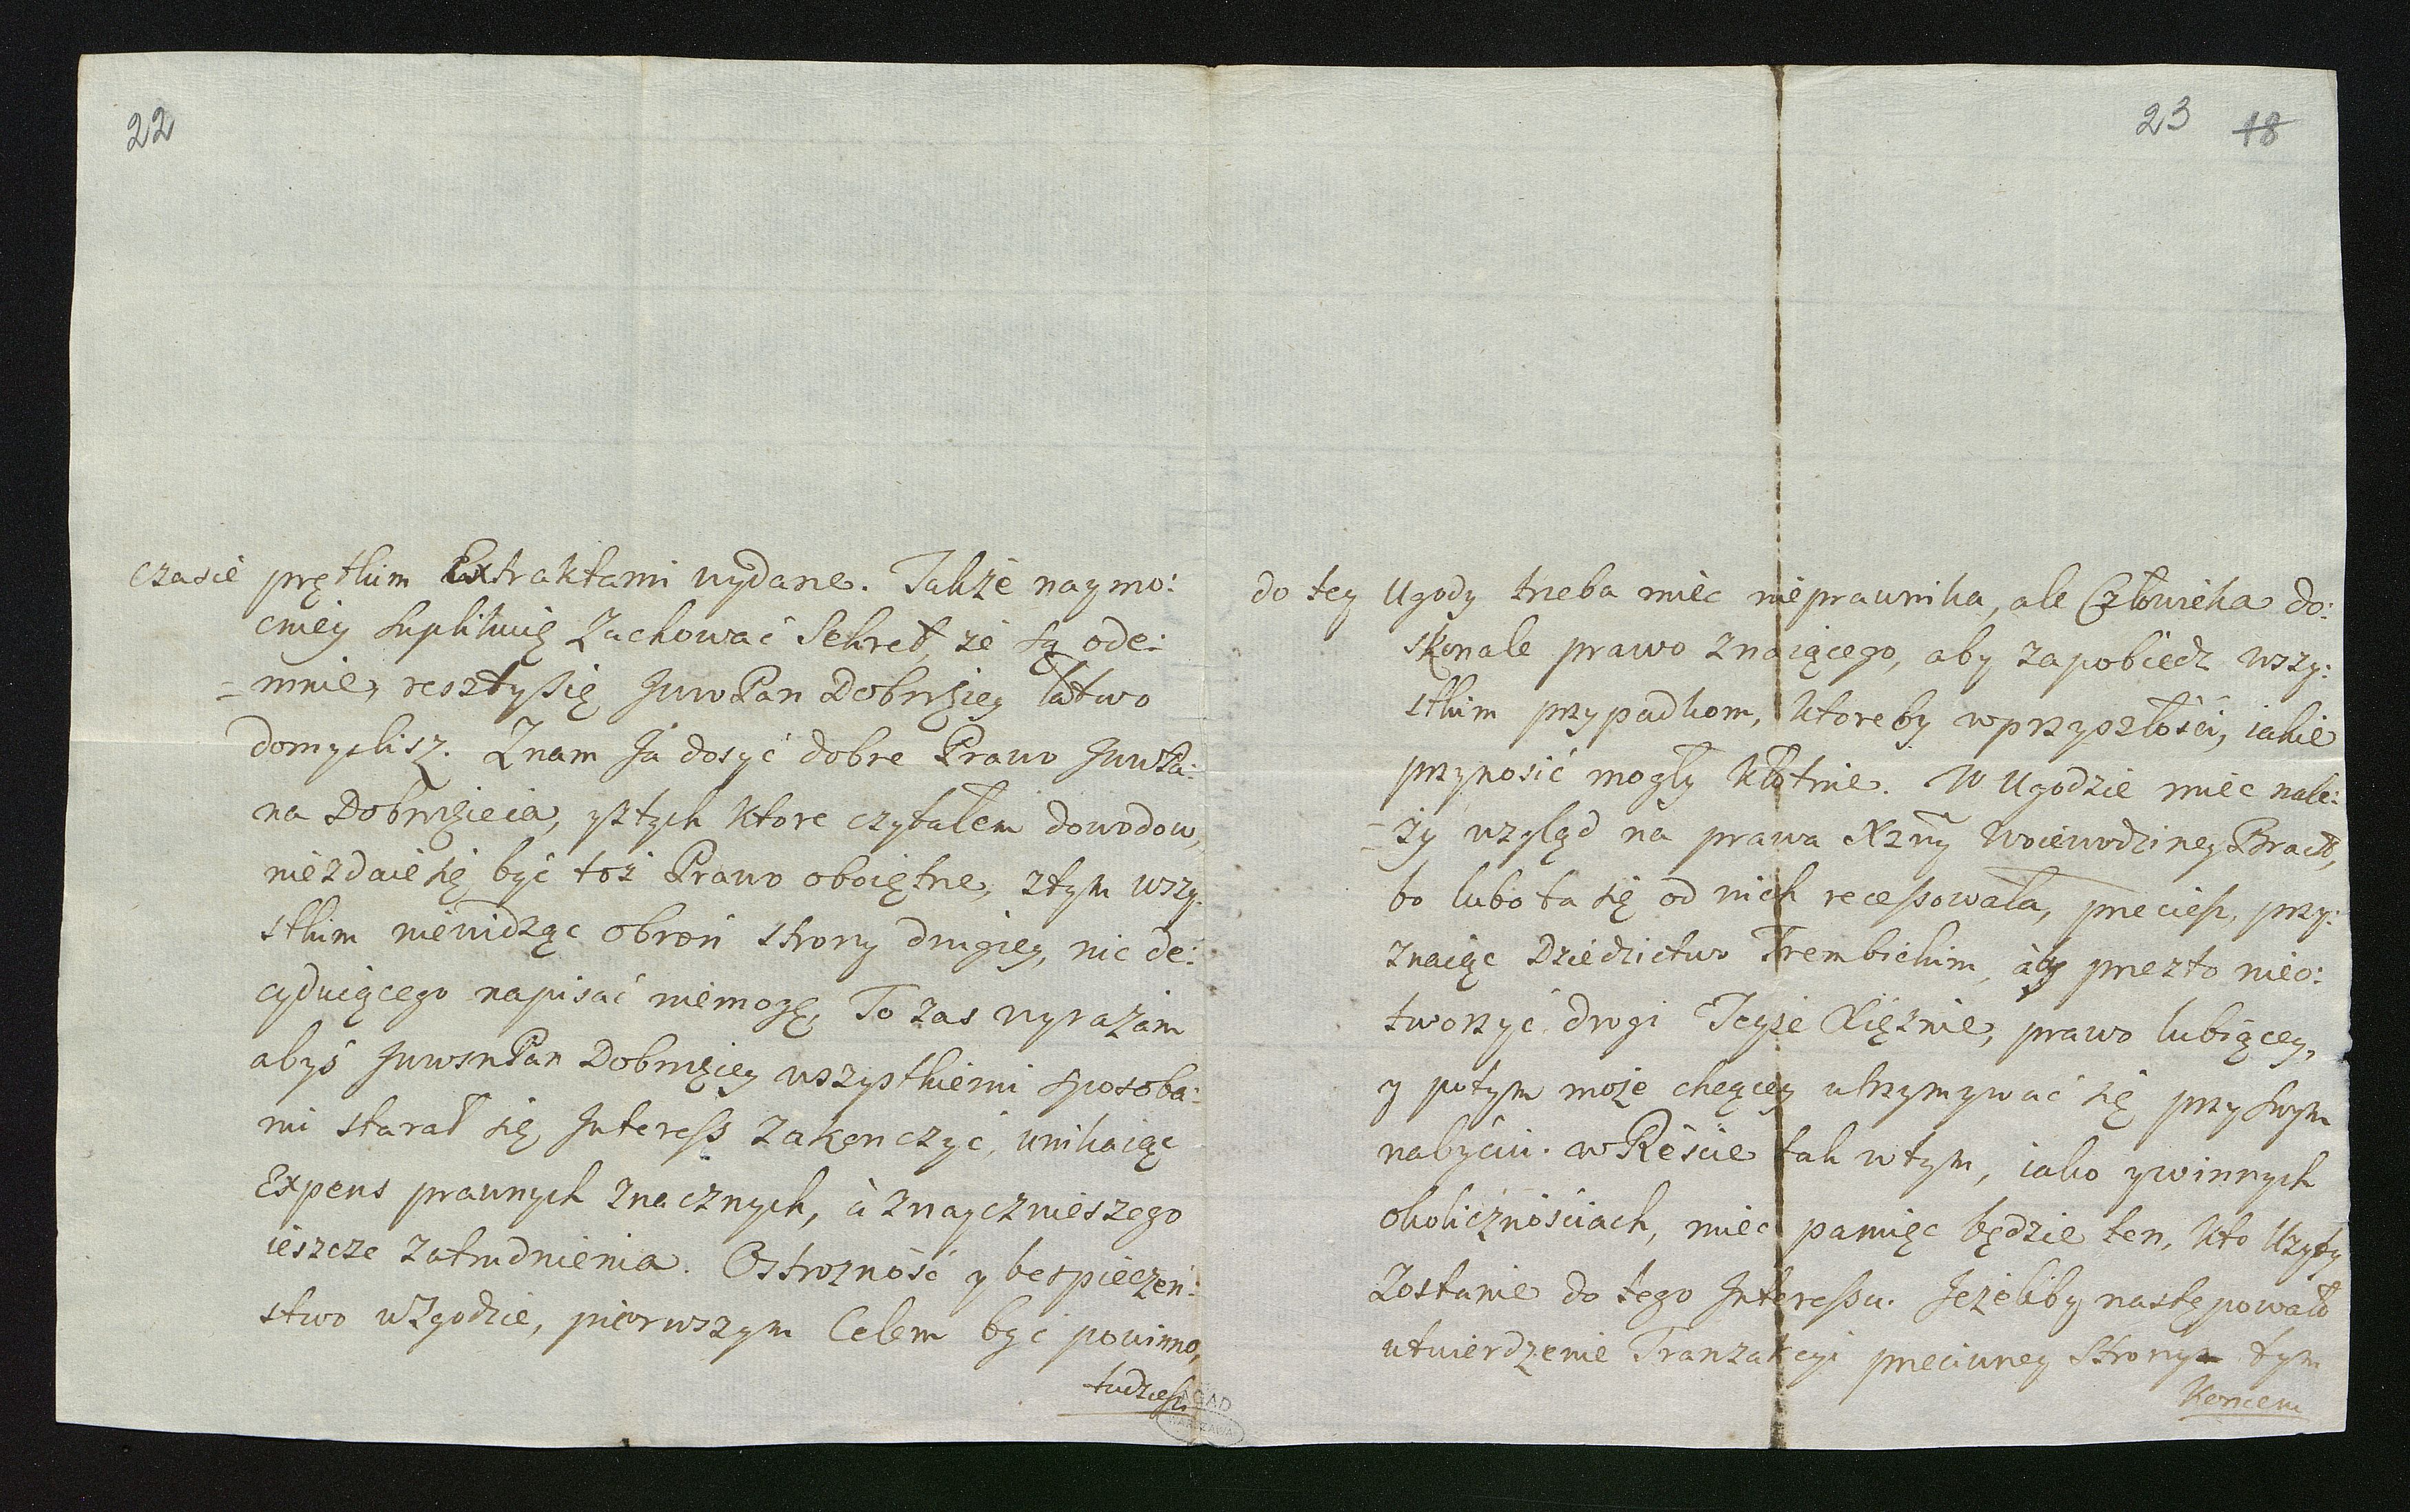 22
czasie prętkim Extraktami wydane. Takze naymo:
cniey suplikuię Zachować Sekret, ze są ode:
= mnie, reszty się JwwPan Dobrodziey łatwo
domyslisz. Znam Ja dosyć dobre Prawo JwwPa:
na Dobrodzieia, y z tych ktore czytałem dowodow,
niezdaie się być toż Prawo oboiętne, z tym wszy:
stkim niewidząc obron strony drugiey, nic de:
cyduiącego napisać niemogę, To zas wyrażam
abyś JwwmPan Dobrodziey wszystkiemi sposoba:
mi starał się Interess zakonczyć, unikaiąc
Expens prawnych znacznych, à znaycznieszego
ieszcze zatrudnienia. Ostrozność y bespieczeń:
stwo w Zgodzie, pierwszym Celem byc powinno,
tudziesz
AGAD
WARSZAWA
23 18
do tey Ugody trzeba miec nieprawnika, ale Człowieka do:
skonale prawo znaiącego, aby zapobiedz wszy:
stkim przypadkom, ktoreby w przyszłości, iakie
przynosić mogły kłotnie. W Ugodzie miec nale:
= ży wzgląd na prawa Xzny Woiewodziney Bracł,
bo lubo ta się od nich recessowała, przeciesz, przy:
znaiąc Dziedzictwo Trembickim, aby przezto nieo:
tworzyć drogi Teyże Xiężnie, prawo lubiącey,
y potym może chcącey utrzymywać się przy swym
nabyciu. w Reście tak w tym, iako y w innych
okolicznościach, miec pamięc będzie ten, kto Uzyty
zostanie do tego Interessu. Jeżeliby następowało
utwierdzenie Tranzakcyi przeciwney Strony tym
Koncem